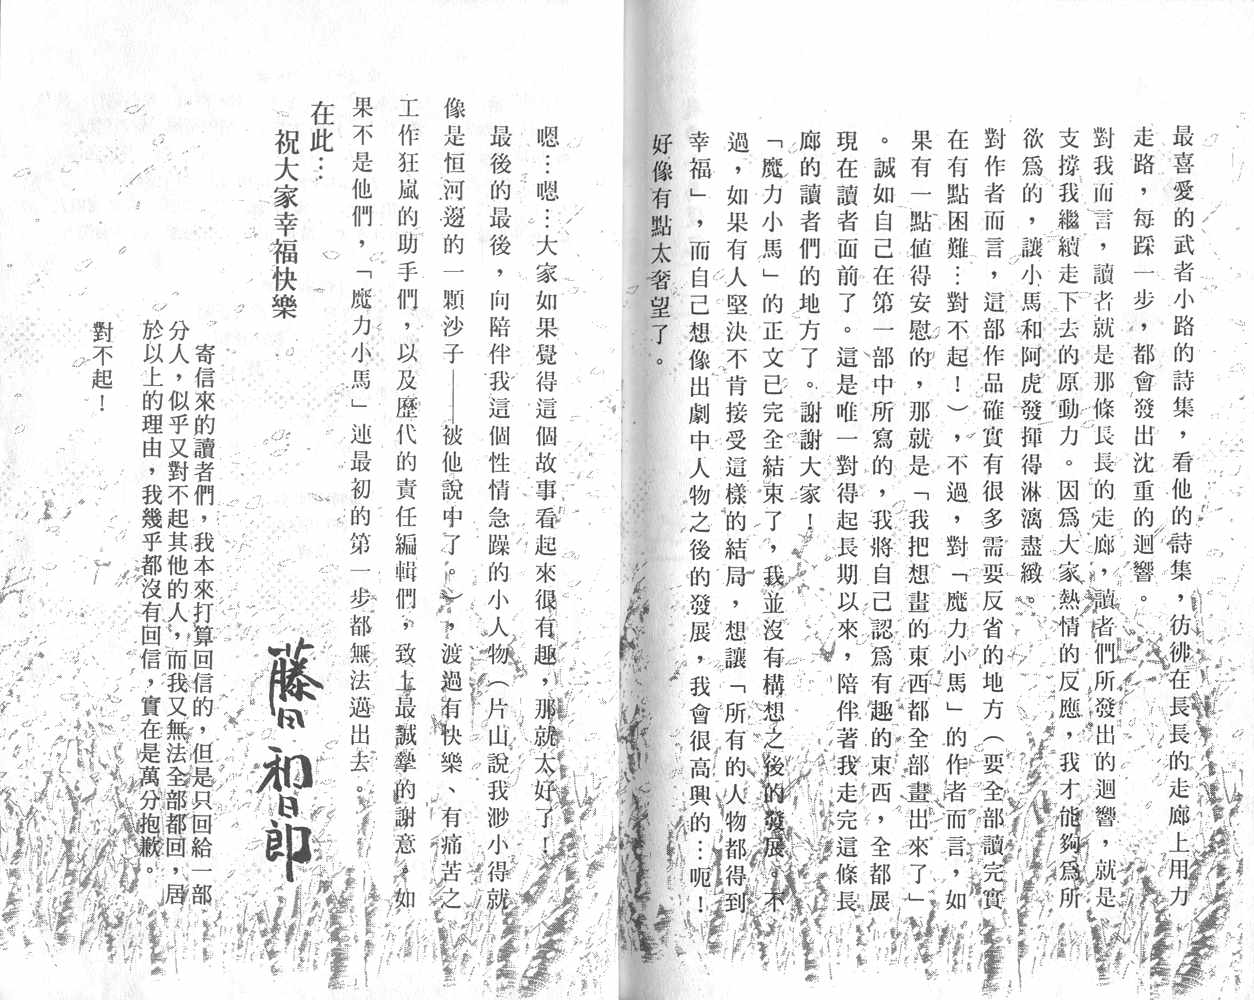 最喜愛的武者小路的詩集，看他的詩集，彷彿在長長的走廊上用力
走路，每踩一步，都會發出沈重的迴響。
對我而言，讀者就是那條長長的走廊，讀者們所發出的迴響，就是
支撐我繼續走下去的原動力。因爲大家熱情的反應，我才能夠爲所
欲爲的，讓小馬和阿虎發揮得淋漓盡緻。
對作者而言，這部作品確實有很多需要反省的地方（要全部讀完實
在有點困難…對不起！），不過，對「魔力小馬」的作者而言，如
果有一點値得安慰的，那就是「我把想畫的東西都全部畫出來了」
。誠如自己在第一部中所寫的，我將自己認爲有趣的東西，全都展
現在讀者面前了。這是唯一對得起長期以來，陪伴著我走完這條長
廊的讀者們的地方了。謝謝大家！
「魔力小馬」的正文已完全結束了，我並沒有構想之後的發展。不
過，如果有人堅決不肯接受這樣的結局，想讓「所有的人物都得到
幸福」，而自己想像出劇中人物之後的發展，我會很高興的…呃！
好像有點太奢望了。
嗯…嗯…大家如果覺得這個故事看起來很有趣，那就太好了！
最後的最後，向陪伴我這個性情急躁的小人物（片山說我渺小得就
像是恒河邊的一顆沙子——被他說中了。），渡過有快樂、有痛苦之
工作狂嵐的助手們，以及歷代的責任編輯們，致上最誠摯的謝意。如
果不是他們，「魔力小馬」連最初的第一步都無法邁出去。
在此…
祝大家幸福快樂
藤田和日郎
寄信來的讀者們，我本來打算回信的，但是只回給一部
分人，似乎又對不起其他的人，而我又無法全部都回，居
於以上的理由，我幾乎都沒有回信，實在是萬分抱歉。
對不起！